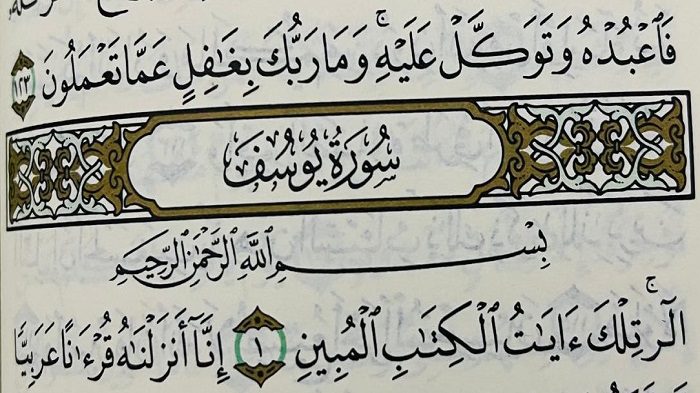 فَٱعۡبُدۡهُ وَتَوَكَّلۡ عَلَيۡهِۚ وَمَا رَبُّكَ بِغَٰفِلٍ عَمَّا تَعۡمَلُونَ ١٢٣
سُورَةُ يُوسُفَ
بِسۡمِ ٱللَّهِ ٱلرَّحۡمَٰنِ ٱلرَّحِيمِ
الٓرۚ تِلۡكَ ءَايَٰتُ ٱلۡكِتَٰبِ ٱلۡمُبِينِ ١ إِنَّآ أَنزَلۡنَٰهُ قُرۡءَٰنًا عَرَبِيّٗا